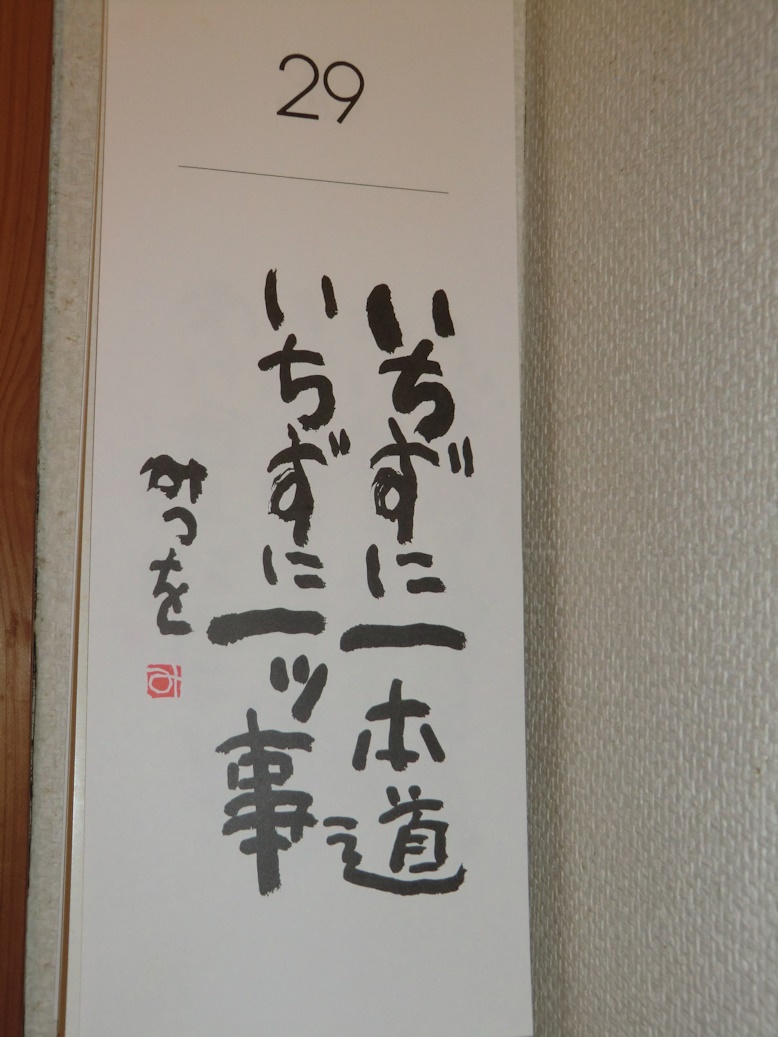 29
いちずに一本道
いちずに一ツ事
みつを
み